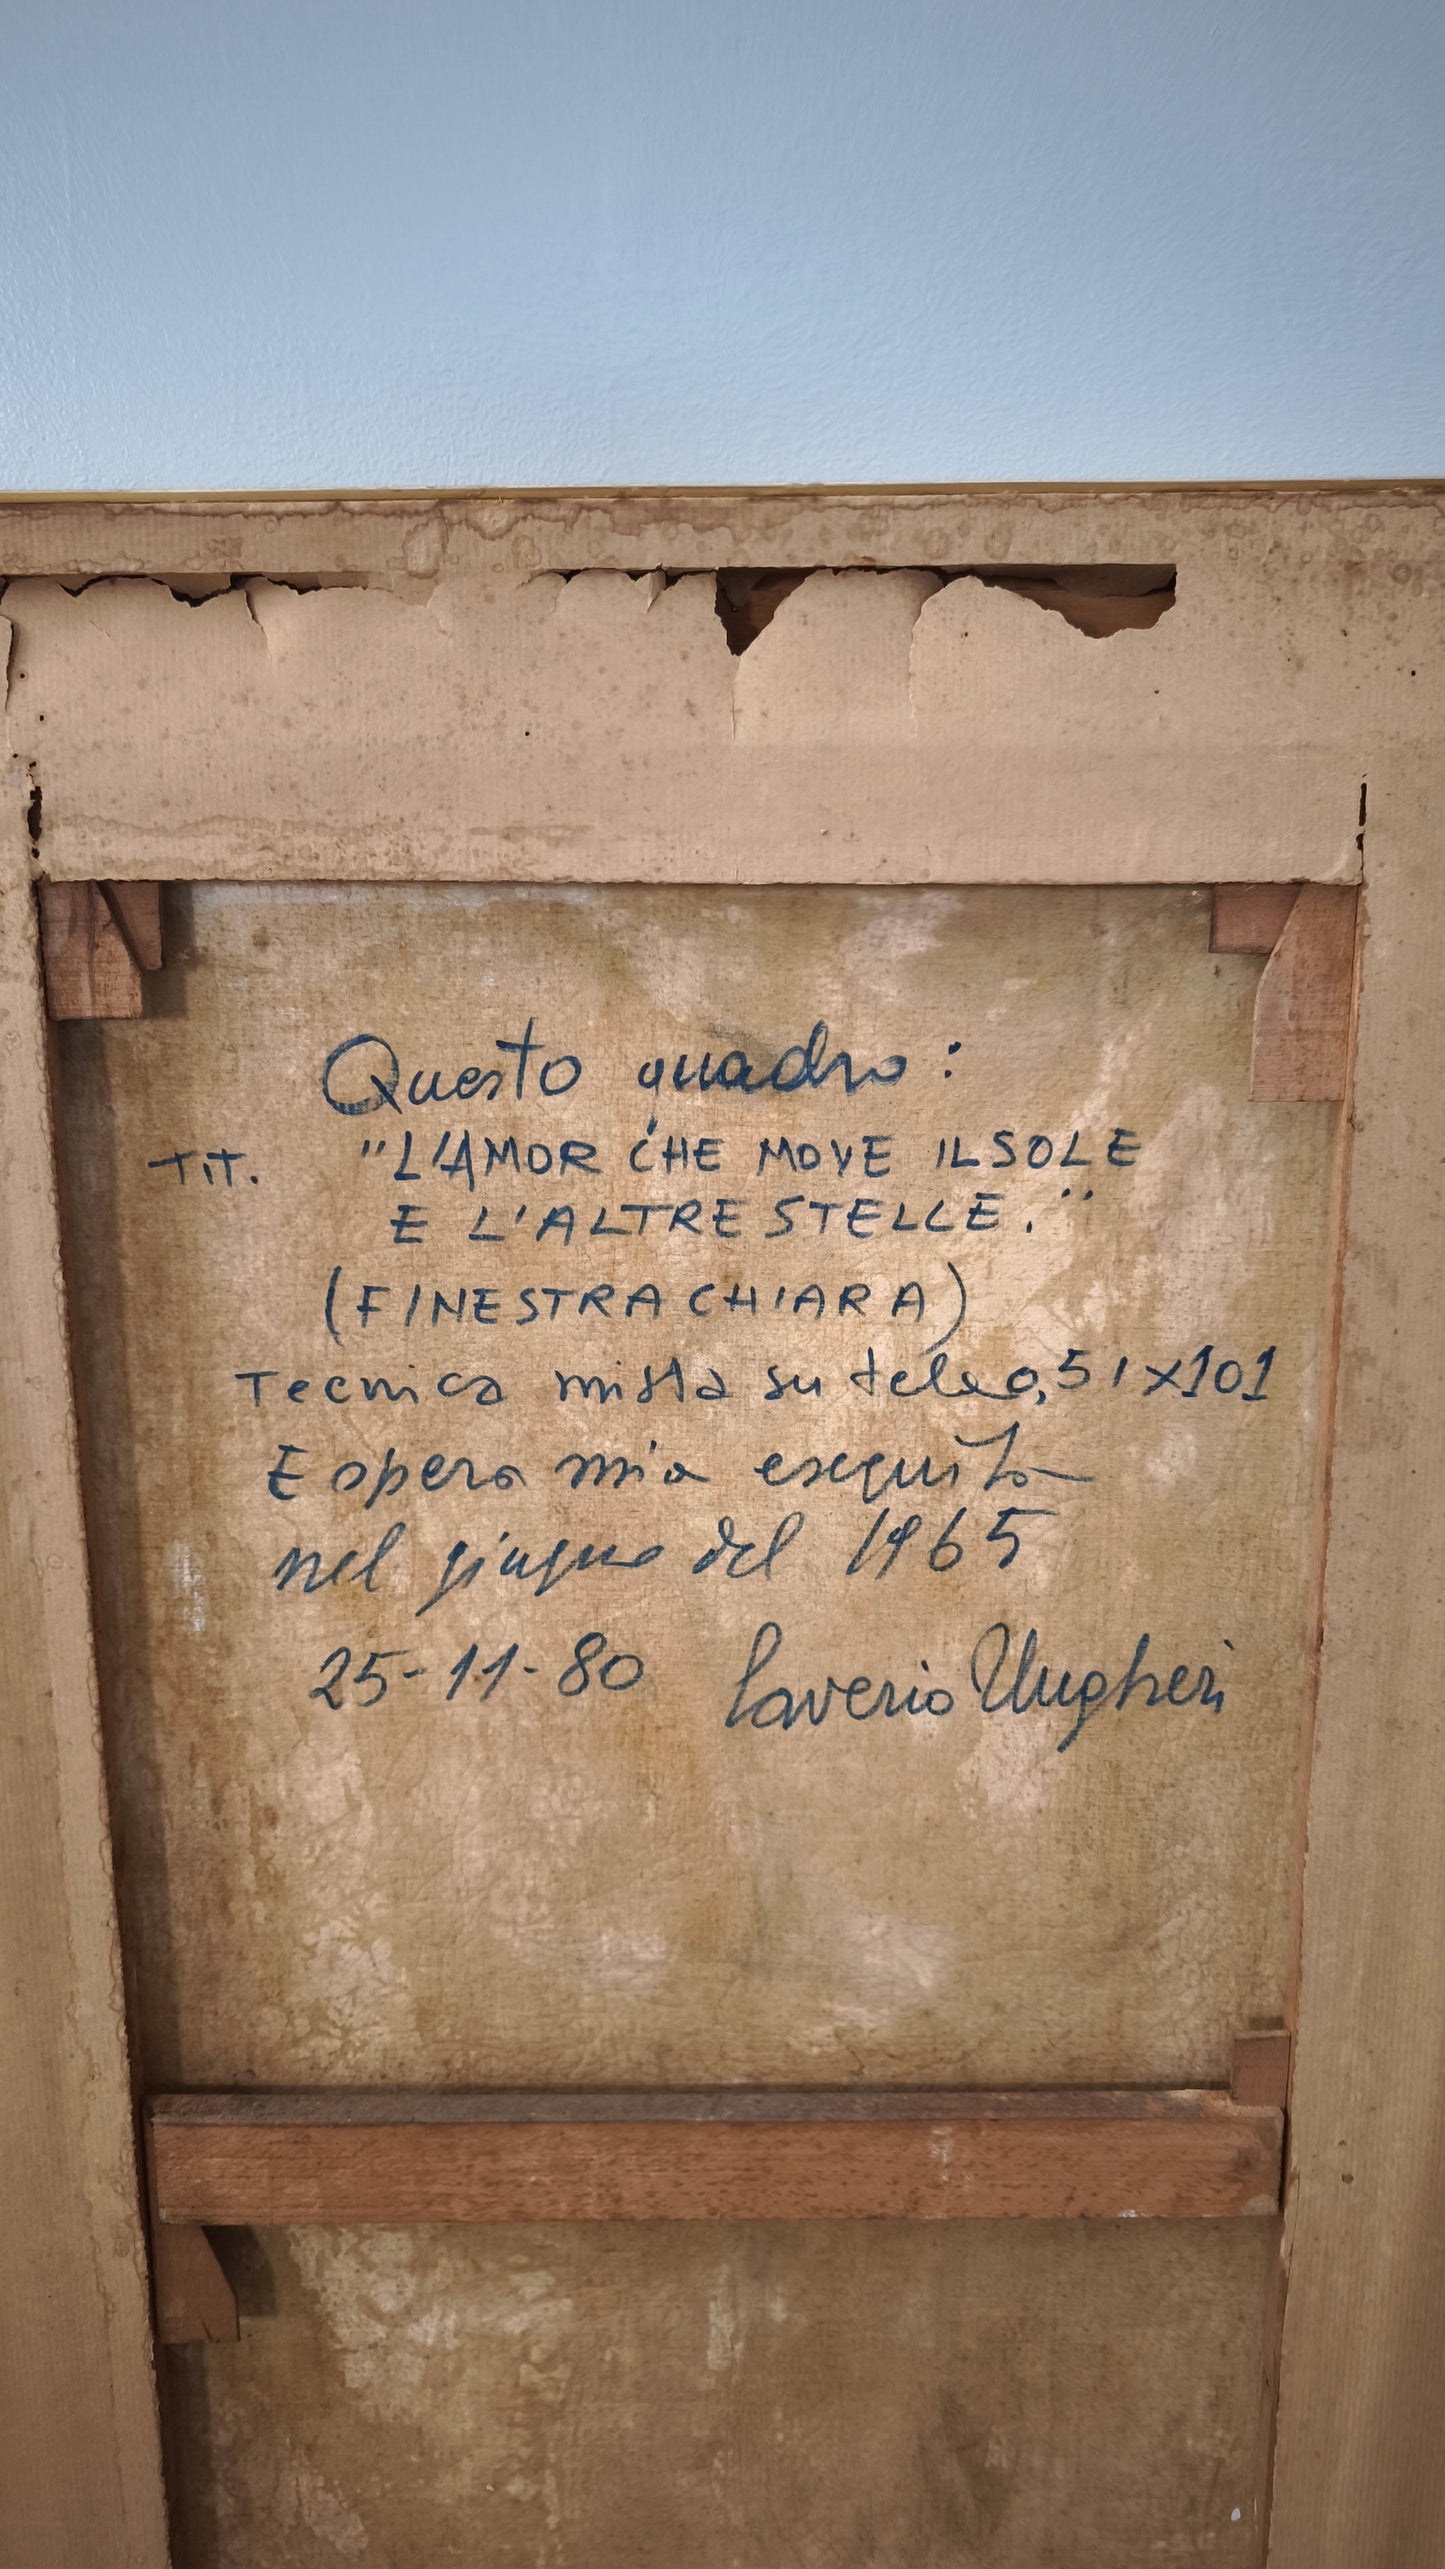 Questo quadro:
TIT. "L'AMOR CHE MOVE IL SOLE
E L'ALTRE STELLE."
(FINESTRA CHIARA)
Tecnica mista su tela 0,51x101
E opera mia eseguita
nel giugno del 1965
25-11-80 Saverio Ungheri